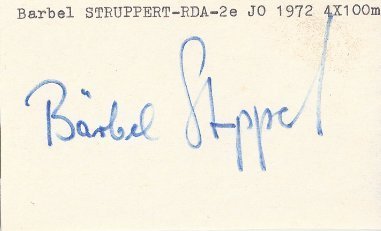 Barbel STRUPPERT-RDA-2e JO 1972 4X100m
Bärbel Struppert